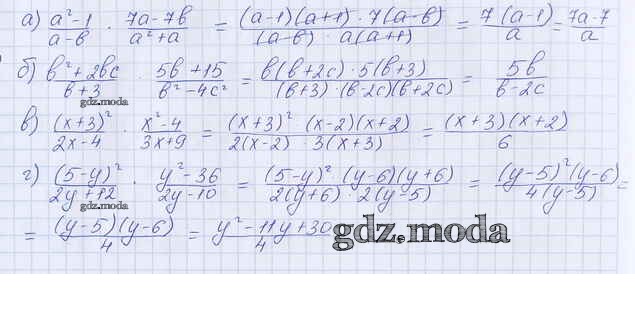 а) (a²-1)/(a-b) · (7a-7b)/(a²+a) = ((a-1)(a+1)·7(a-b))/((a-b)·a(a+1)) = (7(a-1))/a = (7a-7)/a
б) (b²+2bc)/(b+3) · (5b+15)/(b²-4c²) = (b(b+2c)·5(b+3))/((b+3)·(b-2c)(b+2c)) = 5b/(b-2c)
gdz.moda
в) (x+3)²/(2x-4) · (x²-4)/(3x+9) = ((x+3)²·(x-2)(x+2))/(2(x-2)·3(x+3)) = ((x+3)(x+2))/6
г) (5-y)²/(2y+12) · (y²-36)/(2y-10) = ((5-y)²·(y-6)(y+6))/(2(y+6)·2(y-5)) = ((y-5)²(y-6))/(4(y-5)) =
gdz.moda
= ((y-5)(y-6))/4 = (y²-11y+30)/4
gdz.moda